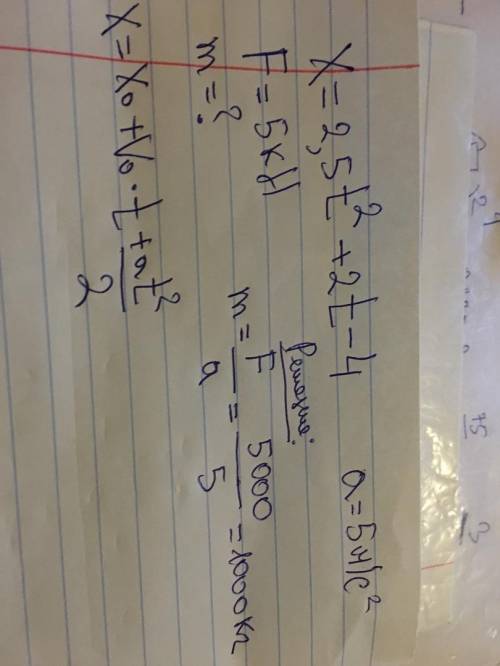 X = 2,5t² + 2t − 4     a = 5м/с²
F = 5кН
Решение:
m = ?
m = F/a = 5000/5 = 1000кг
X = X₀ + V₀ · t + at²/2
75
3